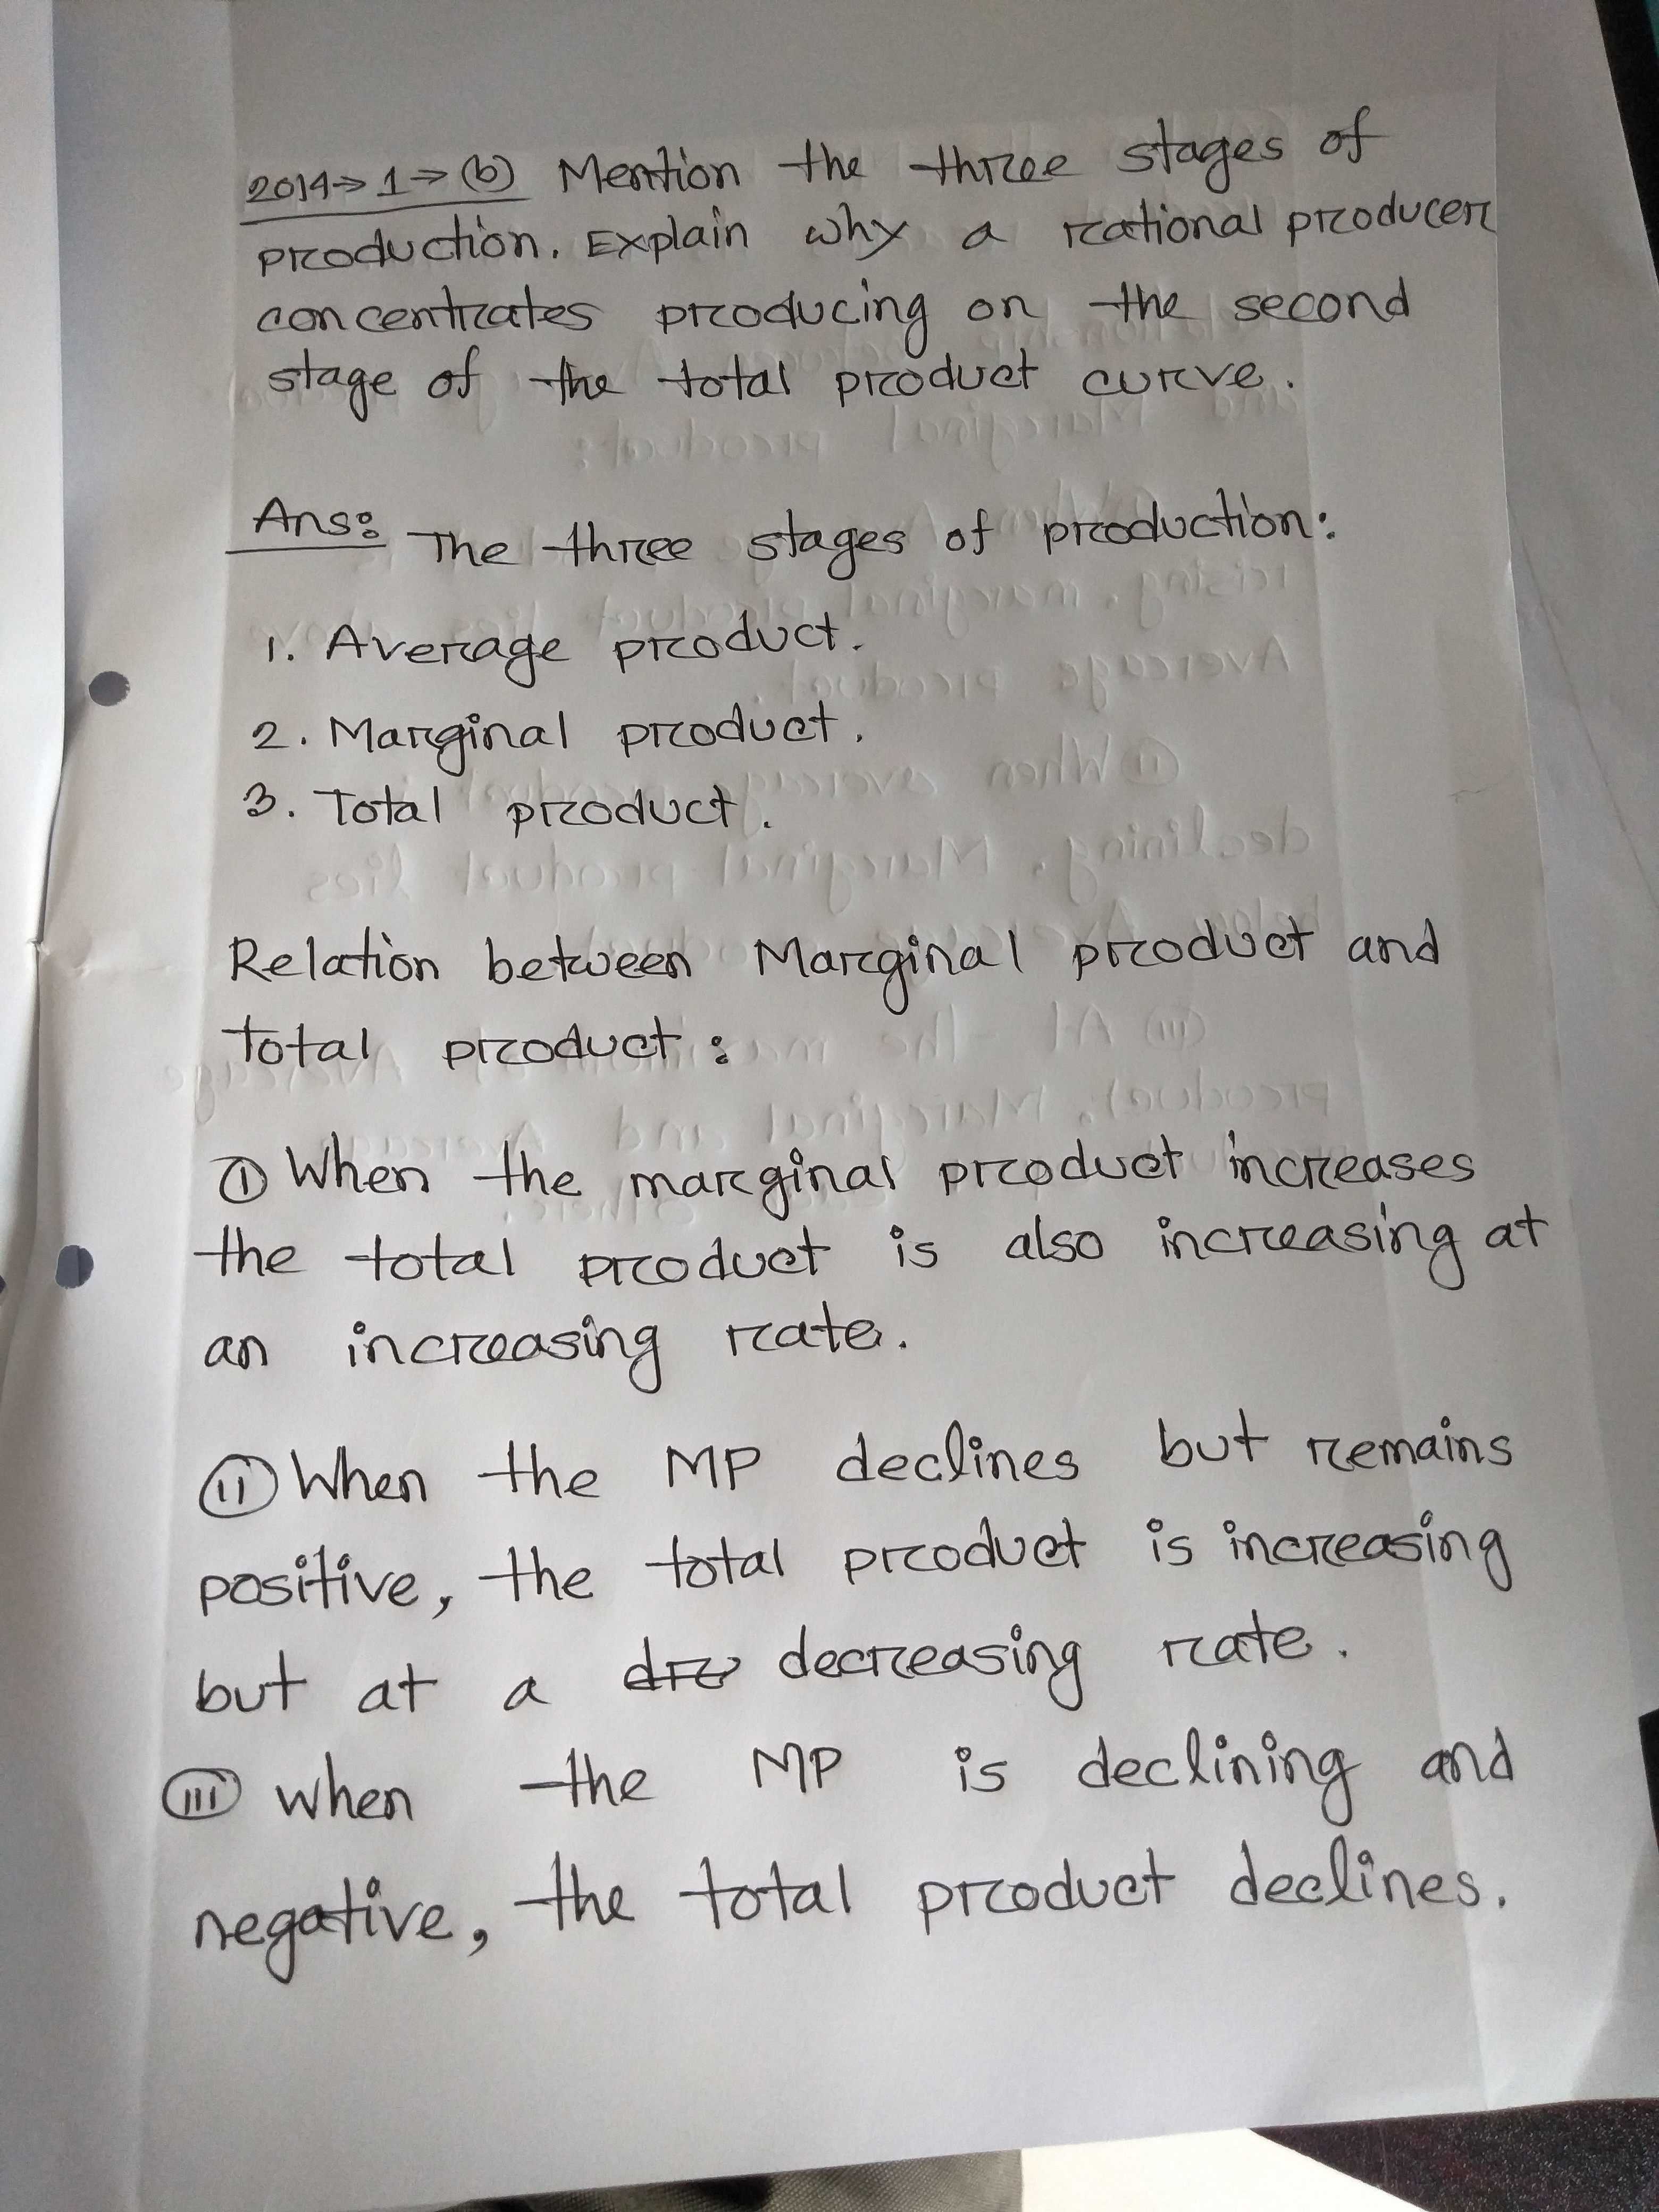 2014→1→(b) Mention the three stages of
production. Explain why a rational producer
concentrates producing on the second
stage of the total product curve.
Ans: The three stages of production:
1. Average product.
2. Marginal product.
3. Total product.
Relation between Marginal product and
Total product:
(i) When the marginal product increases
the total product is also increasing at
an increasing rate.
(ii) When the MP declines but remains
positive, the total product is increasing
but at a decreasing rate.
(iii) When the MP is declining and
negative, the total product declines.